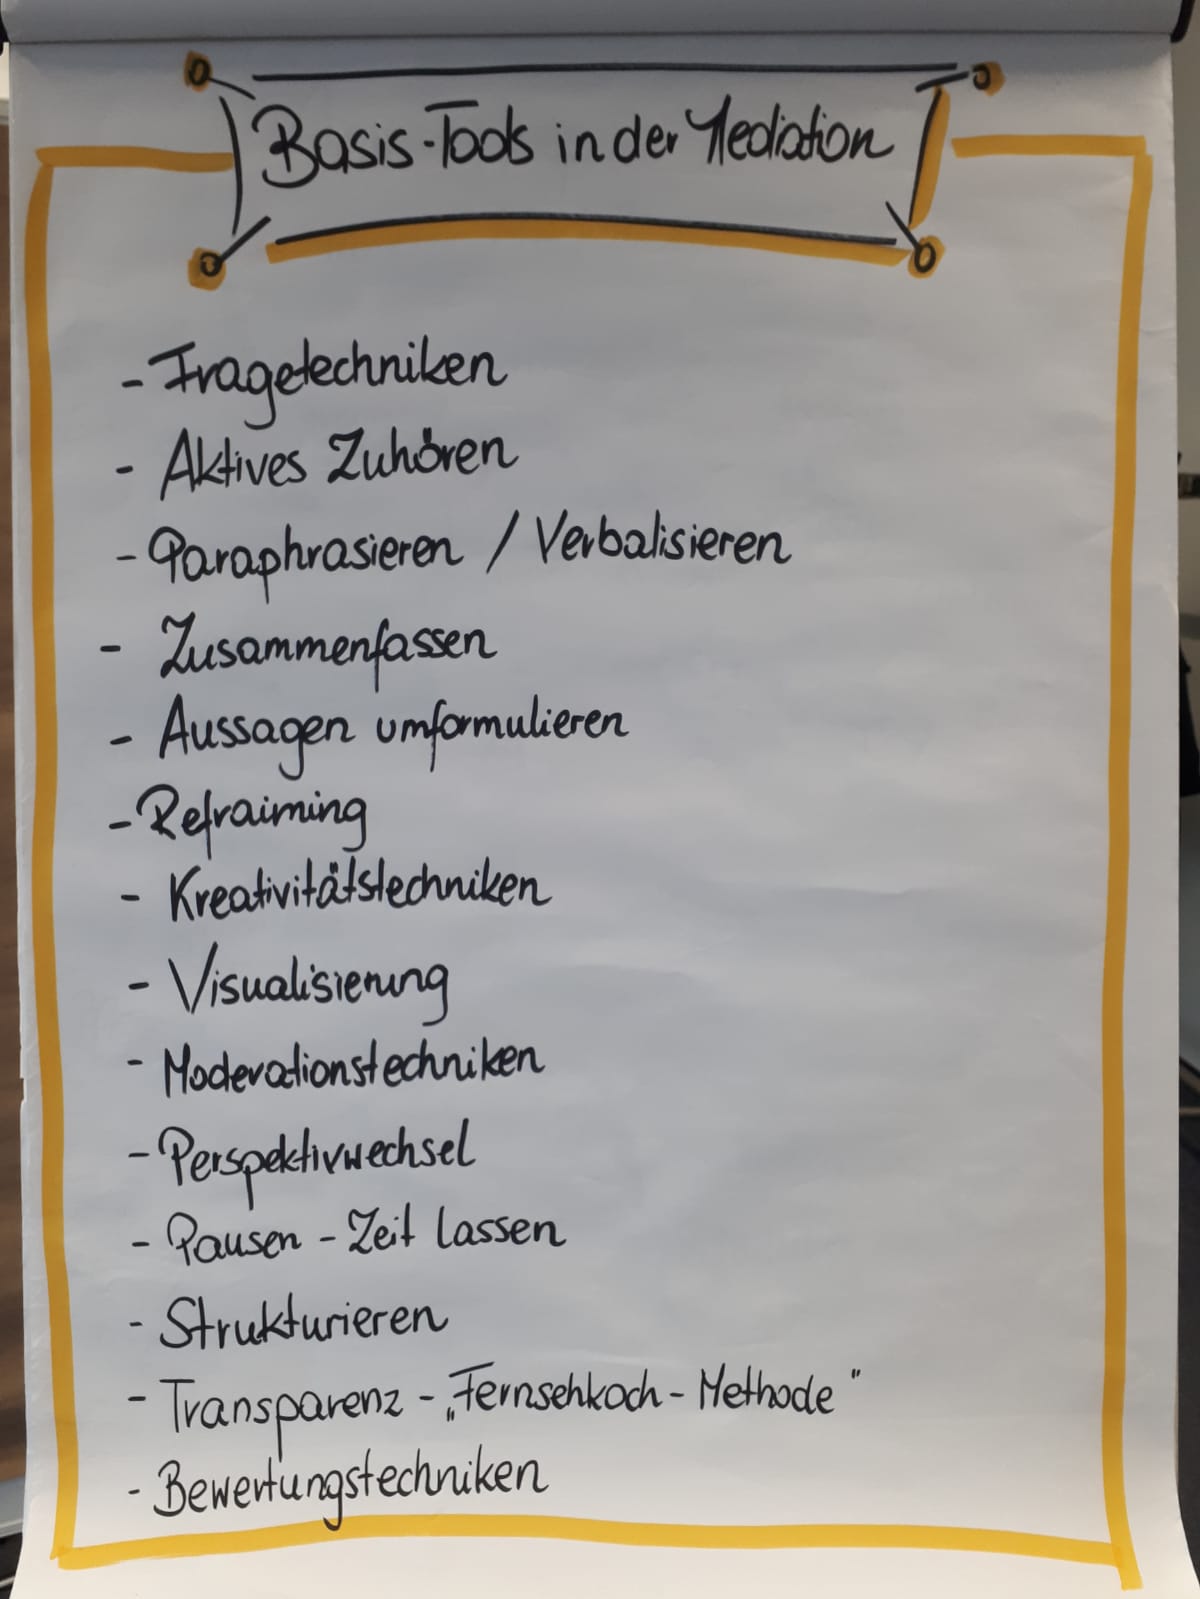 Basis-Tools in der Mediation
- Fragetechniken
- Aktives Zuhören
- Paraphrasieren / Verbalisieren
- Zusammenfassen
- Aussagen umformulieren
- Refraiming
- Kreativitätstechniken
- Visualisierung
- Moderationstechniken
- Perspektivwechsel
- Pausen - Zeit lassen
- Strukturieren
- Transparenz - „Fernsehkoch - Methode"
- Bewertungstechniken